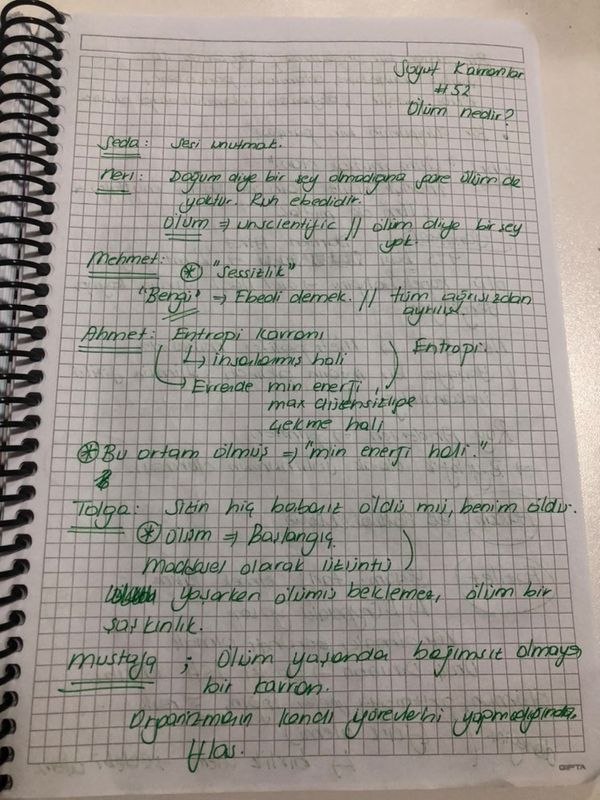 Soyut Kavramlar
#52
Ölüm nedir?
Seda: Sesi unutmak.
Neri: Doğum diye bir şey olmadığına göre ölüm de
yoktur. Ruh ebedidir.
Ölüm => unscientific // ölüm diye bir şey
yok.
Mehmet: * "Sessizlik"
"Bengi" => Ebedi demek. // tüm ağrısızdan
ayrılış.
Ahmet: Entropi kavramı
↳ insanlarmış hali
Entropi.
↳ Evrende min enerji,
max düzensizliğe
çekme hali
* Bu ortam ölmüş => "min enerji hali."
Tolga: Sizin hiç babanız öldü mü, benim öldü.
* Ölüm => Başlangıç.
Maddesel olarak üzüntü
yaşarken ölümü beklemez, ölüm bir
şaşkınlık.
Mustafa; Ölüm yaşamda bağımsız olmayan
bir kavram.
Organizmanın kendi görevlerini yapmadığında.
Iflas.
GIPTA